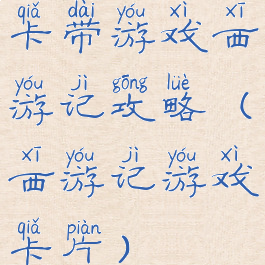 qiǎ dài yóu xì xī
卡带游戏西
yóu jì gōng lüè
游记攻略（
xī yóu jì yóu xì
西游记游戏
qiǎ piàn
卡片）